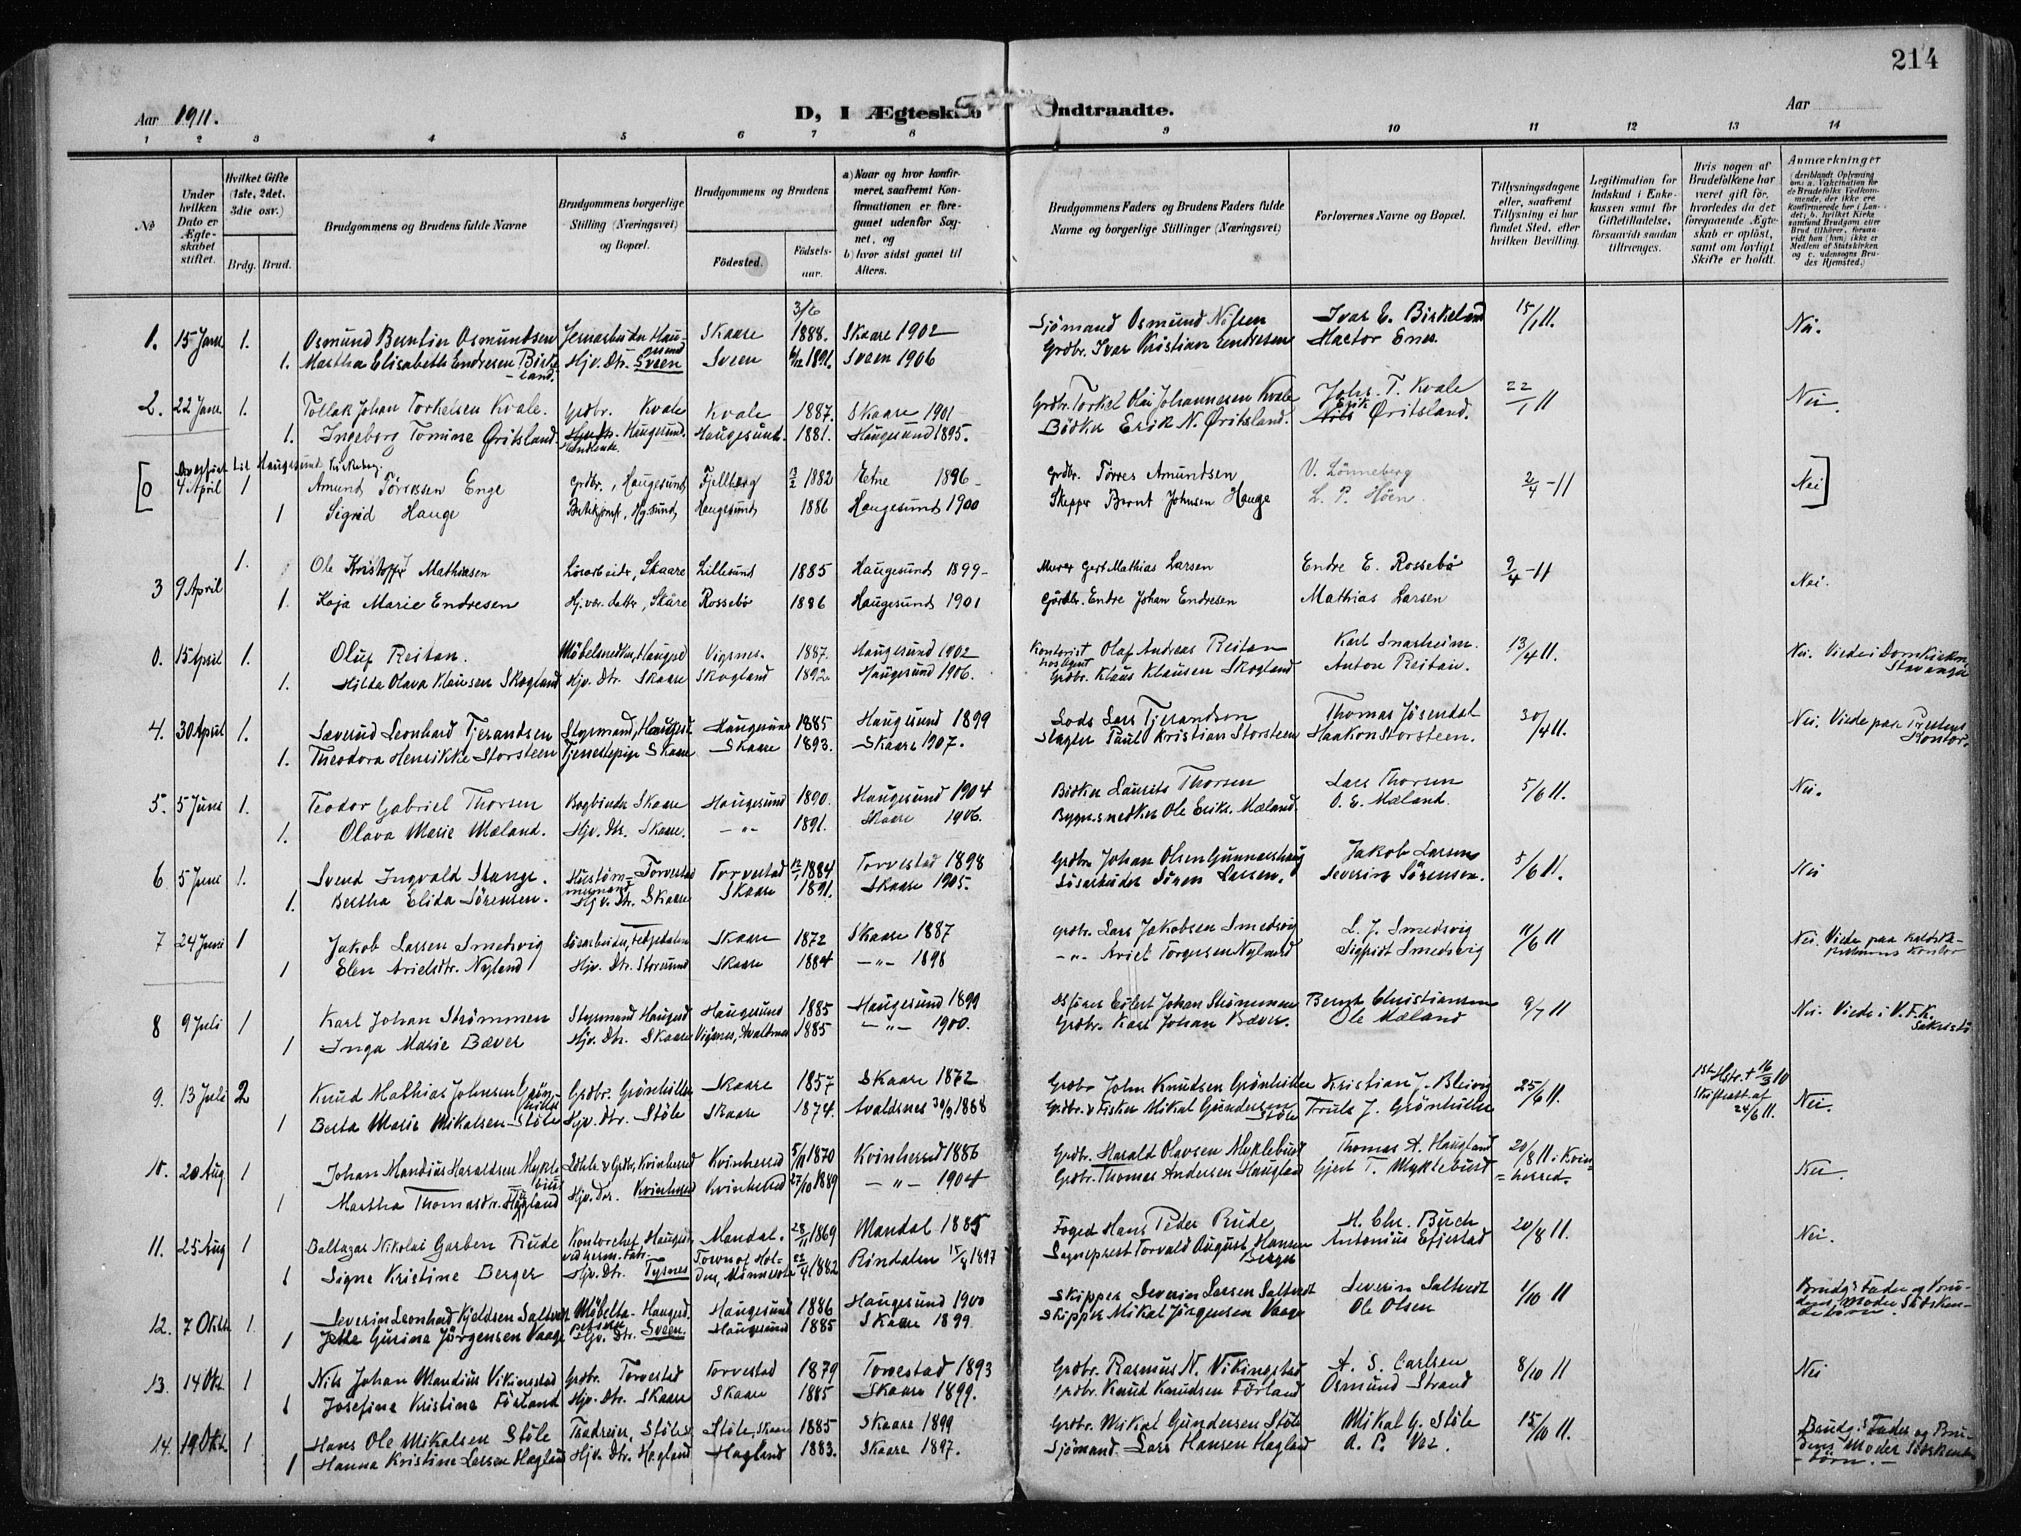 214
Aar 1911.
D, I Ægteskab Indtraadte.
Aar
1 2 3 4 5 6 7 8 9 10 11 12 13 14
№
Under hvilken Dato er Ægteskabet stiftet.
Hvilket Gifte (1ste, 2det, 3die osv.)
Brdg. Brud.
Brudgommens og Brudens fulde Navne
Brudgommens borgerlige Stilling (Næringsvei) og Bopæl.
Brudgommens og Brudens
Fødested. Fødsels-aar.
a) Naar og hvor konfirmeret, saafremt Konfirmationen er foregaaet udenfor Sognet, og
b) hvor sidst gaaet til Alters.
Brudgommens Faders og Brudens Faders fulde Navne og borgerlige Stillinger (Næringsvei)
Forlovernes Navne og Bopæl.
Tillysningsdagene eller, saafremt Tillysning ei har fundet Sted, efter hvilken Bevilling.
Legitimation for Indskud i Enkekassen samt for Giftetilladelse, forsaavidt saadan tiltrænges.
Hvis nogen af Brudefolkene har været gift før, hvorledes da det foregaaende Ægteskab er opløst, samt om lovligt Skifte er holdt.
Anmærkninger
(deriblandt Oplysning om: a. Vakcination for de Brudefolks Vedkommende, der ikke ere konfirmerede her i Landet; b. hvilket Kirkesamfund Brudgom eller Brud tilhører, forsaavidt han (hun) ikke er Medlem af Statskirken og c. udensogns Brudes Hjemsted.)
1. 15 Janr 1. Osmund Berntin Osmundsen Jernarbeider Haugesund Skaare 3/6 1888. Skaare 1902 Sjömand Osmund Nilsen Ivar E. Birkeland 15/1 11. Nei.
1. Martha Elisabeth Endresen Birkeland. Hjv. Dtr. Sveen Sveen 6/12 1891. Sveen 1906 Grdbr. Ivar Kristian Endresen
2. 22 Janr 1. Tollak Johan Torkelsen Kvale. Grdbr. Kvale Kvale 1887. Skaare 1901 Grdbr. Torkel Olai Johannesen Kvale Johs. T. Kvale 22/1 11 Nei.
1. Ingeborg Tomine Øritsland. Handlende Haugesund. Haugesund. 1881. Haugesund 1895. Bödker Erik N. Øritsland. Erik Øritsland.
Overført til Haugesund Kirkebog.
[0 4 April 1 Amund Törresen Enge grdbr., Haugesund Fjellberg 13/2 1882 Etne 1896 Grdbr. Törres Amundsen V. Lönneberg 2/4-11 Nei]
1 Sigrid Hauge Butikjomf., Hgsund, Haugesund 1886 Haugesund 1900 Skipper Bernt Johnsen Hauge L. P. Höen.
3 9 April 1. Ole Kristoffer Mathiasen Lösarbeider, Skaare Lillesund 1885 Haugesund 1899 Murer Gert Mathias Larsen Endre E. Rossebö 9/4-11 Nei.
1. Kaja Marie Endresen Hjver. datter, Skåre Rossebö 1886 Haugesund 1901 Gårdbr. Endre Johan Endresen Mathias Larsen
0. 15 April 1. Oluf Reitan. Möbelsnedker, Haugesd Vigsnes. 1887. Haugesund 1902 Kontorist hos Agent Olaf Andreas Reitan Karl Snarheim. 13/4 11. Nei. Viede i Domkirken Stavanger
1. Hilda Olava Klausen Skogland Hjv. Dtr. Skaare Skogland 1892 Haugesund 1906. Grdbr. Klaus Klausen Skogland Anton Reitan.
4. 30 April 1. Sæverud Leonhard Tjerandsen Styrmand, Haugesd. Haugesund 1885 Haugesund 1899 Lods Lars Tjerandsen Thomas Jösendal 30/4 11. Nei. Viede paa Prestens Kontor.
1. Theodora Henrikke Storsteen Tjenestepige Skaare Skaare 1893. Skaare 1907. Slagter Paul Kristian Storsteen Haakon Storsteen.
5. 5 Juni 1. Teodor Gabriel Thorsen Bogbinder Skaare Haugesund 1890. Haugesund 1904 Bödker Laurits Thorsen Lars Thorsen 5/6 11. Nei.
1. Olava Marie Mæland. Hjv. Dtr. Skaare. -"- 1891. Skaare 1906. Bygn.snedker Ole Eriks. Mæland. O. E. Mæland.
6 5 Juni 1. Svend Ingvald Stange. Torvestad Torvestad 12/7 1884 Torvestad 1898 Grdbr. Johan Olsen Gunnarshaug Jakob Larsen 5/6 11. Nei
1. Bertha Elida Sörensen. Hjv. Dtr. Skaare Skaare 1891. Skaare 1905. Lösarbeider Sören Larsen. Severin Sörensen.
7 24 Juni 1 Jakob Larsen Smedsvig Lösarbeider, Skaare 1872 Skaare 1887 Grdbr. Lars Jakobsen Smedsvig L. J. Smedsvig 11/6 11 Nei. Viede paa Kontor
1 Elen Arielsdtr. Nyland Hjv. Dtr. Storesund Skaare 1884 -"- 1898 -"- Ariel Torgersen Nyland Sigfridt Smedsvig
8 9 Juli 1 Karl Johan Strömmen Styrmand Haugesd Haugesund 1885 Haugesund 1899 Eilert Johan Strömmen Bernt Christiansen 9/7 11 Nei. Viede i V. F. K. Sakristi
1 Inga Marie Bæver Hjv. Dtr. Skaare Vigsnes, Avaldsnes 1885 -"- 1900. Grdbr. Karl Johan Bæver. Ole Mæland
9. 13 Juli 2 Knud Mathias Johnsen Grönhille Grdbr. Grönhille Skaare 1857 Skaare 1872 Grdbr John Knudsen Grönhille Kristian J. Bleivig 25/6 11. 16/3 10 Skifteatt. af 24/6 11. Nei.
1 Berta Marie Mikalsen Stöle Hjv. Dtr. Stöle Skaare 1874. Avaldsnes 30/9 1888 Grdbr. & Fisker Mikal Gundersen Stöle Truls J. Grönhille
10. 20 Aug 1 Johan Mandius Haraldsen Myklebust & Grdbr, Kvinherred Kvinherred 5/11 1870 Kvinherred 1886 Grdbr. Harald Olavsen Myklebust Thomas A. Haugland 20/8 11 i Kvinherred. Nei.
1 Martha Thomasdtr. Haugland Hjv. Dtr. Kvinherred Kvinherred 27/10 1889 -"- 1904 Grdbr. Thomas Andersen Haugland Gjert T. Myklebust
11. 25 Aug 1 Baltazar Nikolai Garben Rude Kontorchef Haugesd Mandal. 28/11 1869 Mandal 1885 Foged Hans Peder Rude H. Chr. Buch 20/8 11. Nei.
1 Signe Kristine Berger Hjv. Dtr. Tysnes Town of Holden, Minnesota 22/4 1882 Röndalen 15/4 1897 Sogneprest Torvald August Hansen Berger Antonius Efjestad
12. 7 Oktb 1. Severin Leonhard Kjeldsen Saltvedt Möbeltapetserer Haugesd. Haugesund 1886 Haugesund 1900 Skipper Severin Larsen Saltvedt Severin Saltvedt 1/10 11 Brudg's Fader og Brudens Moder Södskendebörn.
1 Jette Gurine Jörgensen Vaage Hjv. Dtr. Sveen. Haugesund 1885 Skaare 1899. Skipper Mikal Jörgensen Vaage Ole Olsen
13. 14 Okt. 1 Nils Johan Mandius Vikingstad Grdbr. Torvestad Torvestad 1879 Torvestad 1893 Grdbr. Rasmus N. Vikingstad A. S. Carlsen 8/10 11 Nei
1 Josefine Kristine Förland Hjv. Dtr. Skaare Skaare 1885 Skaare 1899. Grdbr. Knud Knudsen Förland Osmund Strand
14. 19 Okt. 1 Hans Ole Mikalsen Stöle Traadreier, Stöle Stöle, Skaare 1885 Skaare 1899 Grdbr. Mikal Gundersen Stöle Mikal G. Stöle 15/10 11. Brudg's Fader og Brudens Moder Södskendebörn.
1 Hanna Kristine Larsen Hagland Hjv. Dtr. Hagland Hagland 1883. Skaare 1897. Sjömand. Lars Hansen Hagland